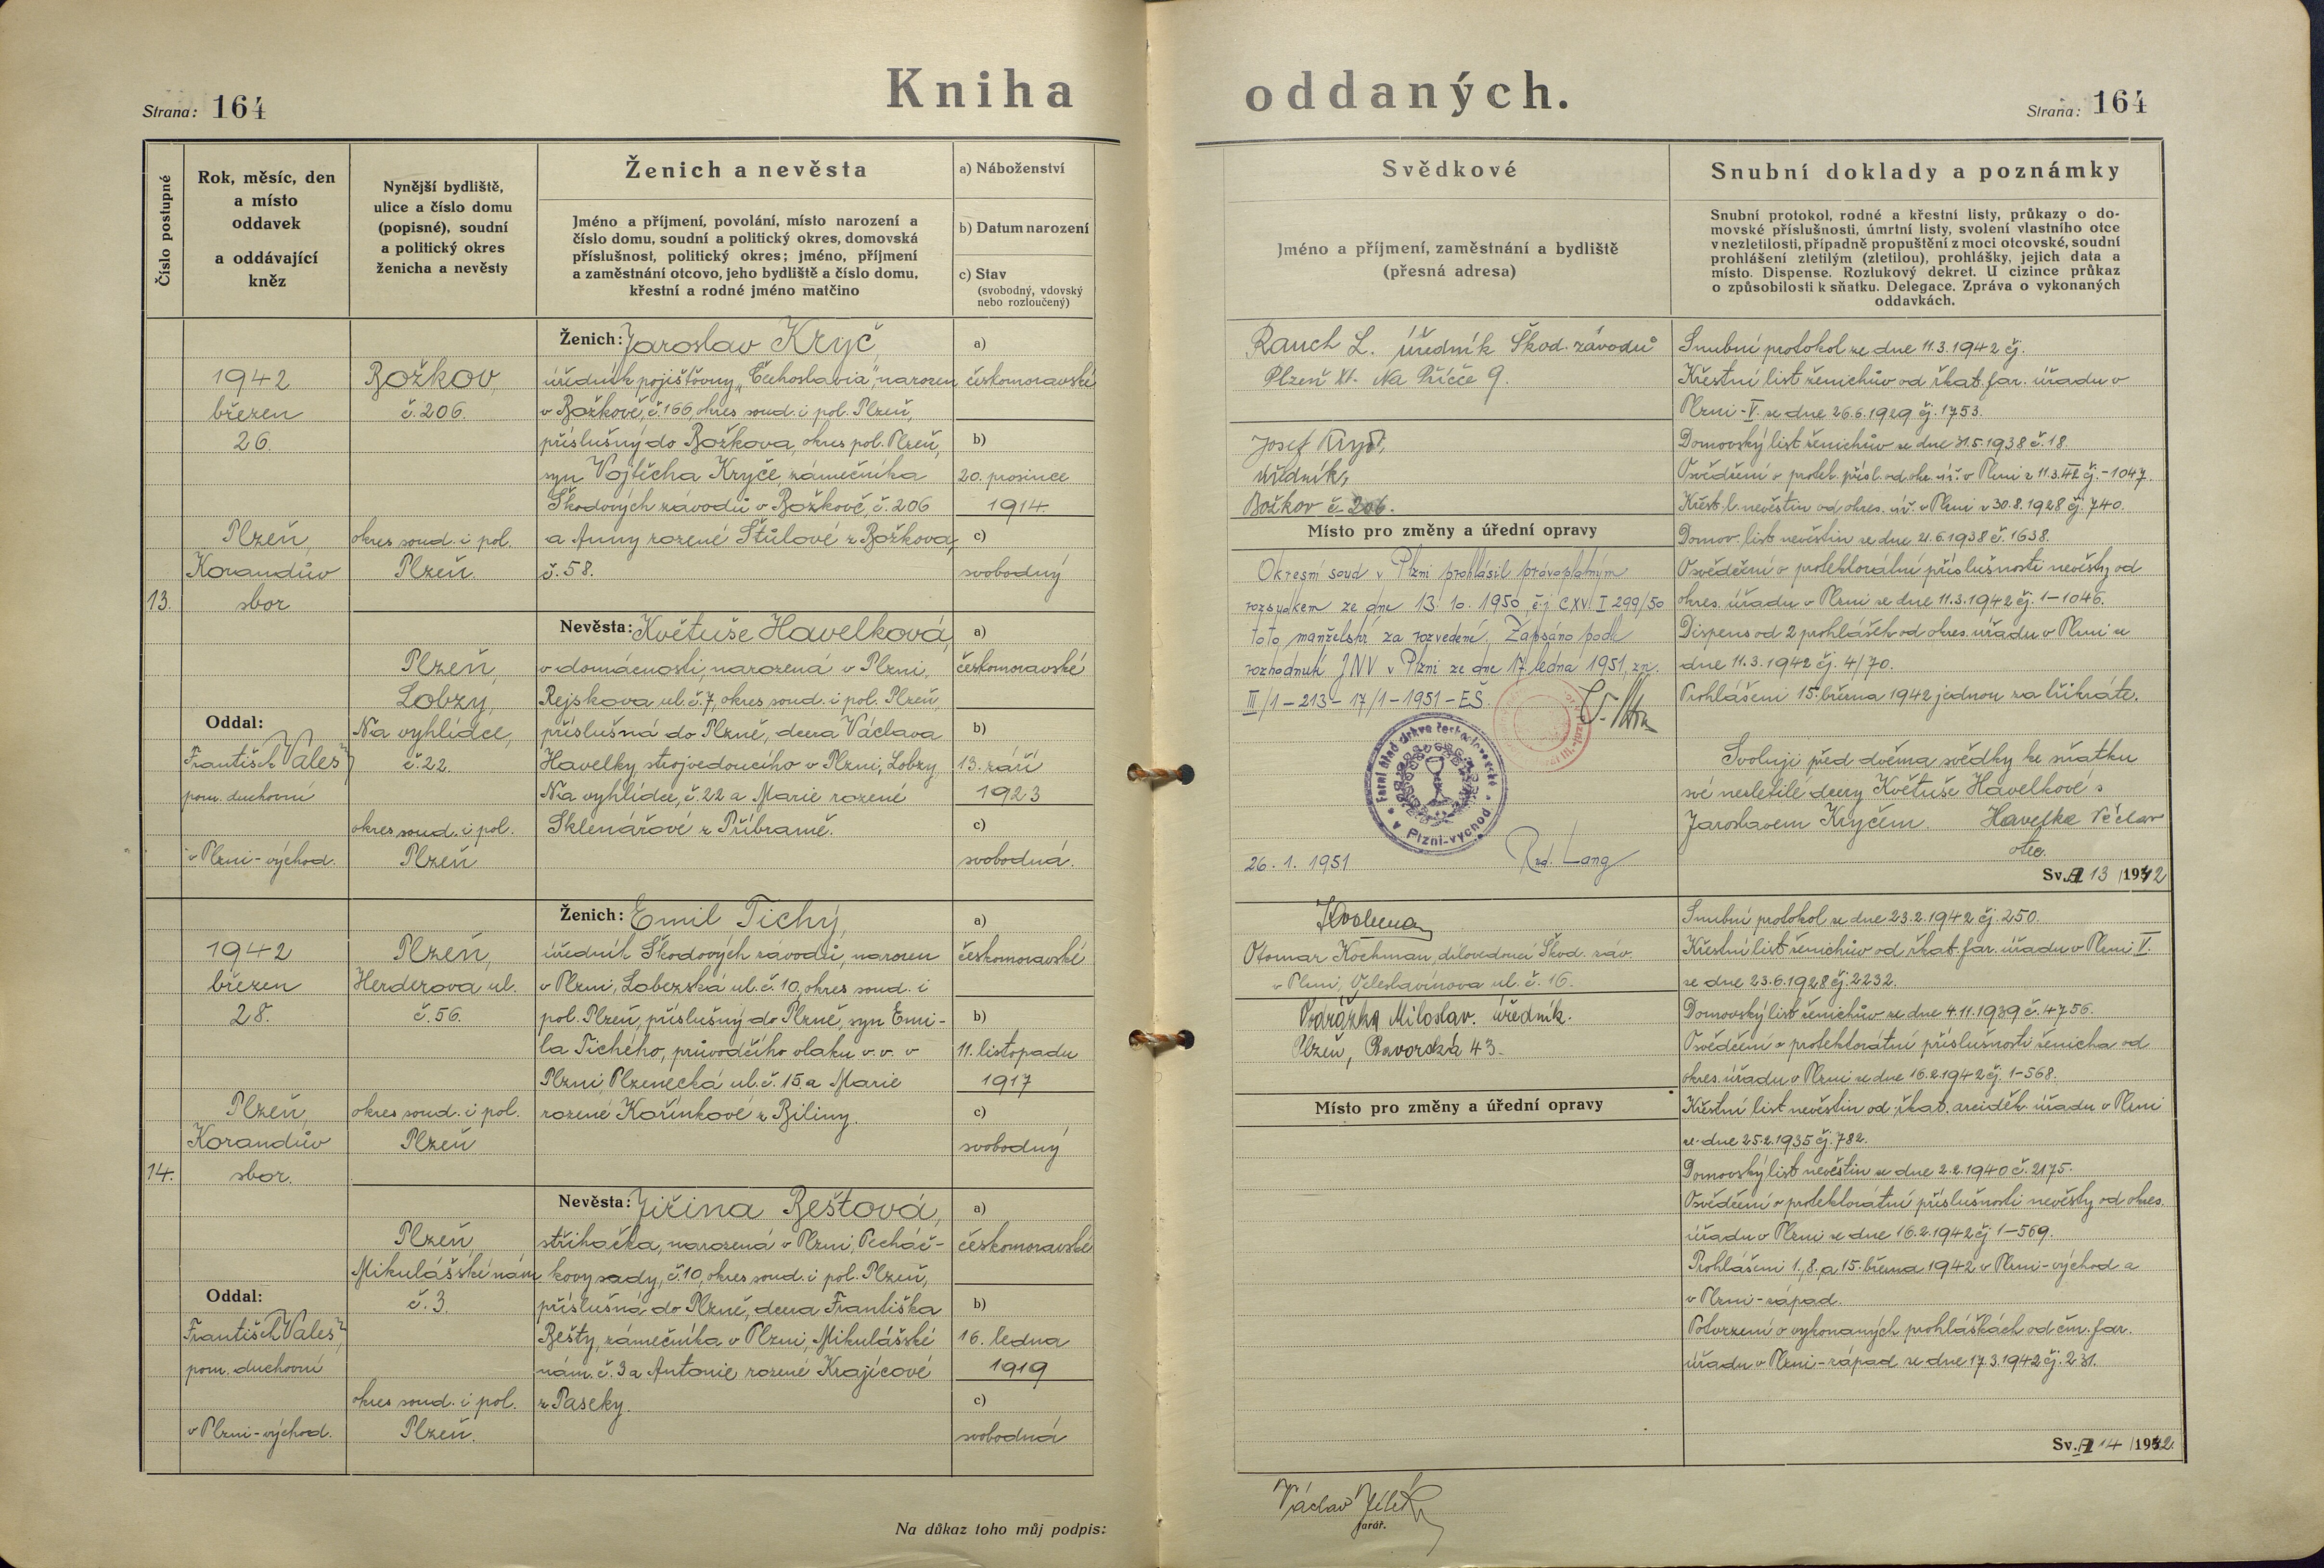 Kniha oddaných.
Strana: 164
Strana: 164
Číslo postupné
Rok, měsíc, den
a místo
oddavek
a oddávající
kněz
Nynější bydliště,
ulice a číslo domu
(popisné), soudní
a politický okres
ženicha a nevěsty
Ženich a nevěsta
Jméno a příjmení, povolání, místo narození a
číslo domu, soudní a politický okres, domovská
příslušnost, politický okres; jméno, příjmení
a zaměstnání otcovo, jeho bydliště a číslo domu,
křestní a rodné jméno matčino
a) Náboženství
b) Datum narození
c) Stav
(svobodný, vdovský
nebo rozloučený)
Svědkové
Jméno a příjmení, zaměstnání a bydliště
(přesná adresa)
Snubní doklady a poznámky
Snubní protokol, rodné a křestní listy, průkazy o do-
movské příslušnosti, úmrtní listy, svolení vlastního otce
v nezletilosti, případně propuštění z moci otcovské, soudní
prohlášení zletilým (zletilou), prohlášky, jejich data a
místo. Dispense. Rozlukový dekret. U cizince průkaz
o způsobilosti k sňatku. Delegace. Zpráva o vykonaných
oddavkách.
13.
1942
březen
26.
Plzeň,
Korandův
sbor
Oddal:
František Valeš
pom. duchovní
v Plzni-východ.
Božkov,
č. 206.
okres soud. i pol.
Plzeň.
Plzeň,
Lobzy,
Na vyhlídce,
č. 22.
okres soud. i pol.
Plzeň
Ženich: Jaroslav Kryč,
úředník pojišťovny „Čechoslavia", narozen
v Božkově, č. 166, okres soud. i pol. Plzeň,
příslušný do Božkova, okres pol. Plzeň,
syn Vojtěcha Kryče, zámečníka
Škodových závodů v Božkově, č. 206
a Anny rozené Štůlové z Božkova,
č. 58.
Nevěsta: Květuše Havelková,
v domácnosti, narozená v Plzni,
Rejskova ul. č. 7, okres soud. i pol. Plzeň,
příslušná do Plzně, dcera Václava
Havelky, strojvedoucího v Plzni, Lobzy,
Na vyhlídce, č. 22 a Marie rozené
Sklenářové z Příbramě.
a)
českomoravské
b)
20. prosince
1914.
c)
svobodný
a)
českomoravské
b)
13. září
1923
c)
svobodná.
Rauch L. úředník Škod. závodů
Plzeň XI. Na Příčce 9.
Josef Kryč,
úředník,
Božkov č. 206.
Místo pro změny a úřední opravy
Okresní soud v Plzni prohlásil právoplatným
rozsudkem ze dne 13. 10. 1950, čj. C XV. I 299/50
toto manželství za rozvedené. Zapsáno podle
rozhodnutí JNV v Plzni ze dne 17. ledna 1951, zn.
III/1 – 213 – 17/1 – 1951 – EŠ.
Farní úřad církve československé
v Plzni-východ
26. 1. 1951
Rud. Lang
Snubní protokol ze dne 11.3.1942 čj.
Křestní list ženichův od řkat. far. úřadu v
Plzni - V. ze dne 26.6.1929 čj. 1753.
Domovský list ženichův ze dne 31.5.1938 č. 18.
Osvědčení o protek. přísl. od okr. úř. v Plzni z 11.3.42 čj. I-1047.
Křest. l. nevěstin od okres. úř. v Plzni z 30.8.1928 čj. 740.
Domov. list nevěstin ze dne 21.6.1938 č. 1638.
Osvědčení o protektorátní příslušnosti nevěsty od
okres. úřadu v Plzni ze dne 11.3.1942 čj. 1-1046.
Dispens od 2 prohlášek od okres. úřadu v Plzni ze
dne 11.3.1942 čj. 4/70.
Prohlášení 15. března 1942 jednou za třikráte.
Svoluji před dvěma svědky ke sňatku
své nezletilé dcery Květuše Havelkové s
Jaroslavem Kryčem. Havelka Václav
otec.
Sv. A 13 /1942
14.
1942
březen
28.
Plzeň,
Korandův
sbor.
Oddal:
František Valeš
pom. duchovní
v Plzni-východ.
Plzeň,
Herderova ul.
č. 56.
okres soud. i pol.
Plzeň
Plzeň,
Mikulášské nám.
č. 3.
okres soud. i pol.
Plzeň.
Ženich: Emil Tichý,
úředník Škodových závodů, narozen
v Plzni, Lobezská ul. č. 10, okres soud. i
pol. Plzeň, příslušný do Plzně, syn Emi-
la Tichého, průvodčího vlaku v. v. v
Plzni, Plzenecká ul. č. 15. a Marie
rozené Kořínkové z Biliny.
Nevěsta: Jiřina Beštová,
střihačka, narozená v Plzni, Pecháč-
kovy sady, č. 10, okres soud. i pol. Plzeň,
příslušná do Plzně, dcera Františka
Bešty, zámečníka v Plzni, Mikulášské
nám. č. 3 a Antonie rozené Krajícové
z Paseky.
a)
českomoravské
b)
11. listopadu
1917
c)
svobodný
a)
českomoravské
b)
16. ledna
1919
c)
svobodná
Otomar Kochman, dílovedoucí Škod. záv.
v Plzni, Veleslavínova ul. č. 16.
Podrázka Miloslav. úředník.
Plzeň, Bavorská 43.
Místo pro změny a úřední opravy
Snubní protokol ze dne 23.2.1942 čj. 250.
Křestní list ženichův od řkat. far. úřadu v Plzni V.
ze dne 23.6.1928 čj. 2232.
Domovský list ženichův ze dne 4.11.1939 č. 4756.
Osvědčení o protektorátní příslušnosti ženicha od
okres. úřadu v Plzni ze dne 16.2.1942 čj. 1-568.
Křestní list nevěstin od řkat. arciděk. úřadu v Plzni
ze dne 25.2.1935 čj. 782.
Domovský list nevěstin ze dne 2.2.1940 č. 2175.
Osvědčení o protektorátní příslušnosti nevěsty od okres.
úřadu v Plzni ze dne 16.2.1942 čj 1-569.
Prohlášení 1., 8. a 15. března 1942 v Plzni-východ a
v Plzni-západ.
Potvrzení o vykonaných prohláškách od čm. far.
úřadu v Plzni-západ ze dne 17.3.1942 čj. 231.
Sv. A 14 /1942
Na důkaz toho můj podpis:
Václav Jílek
farář.